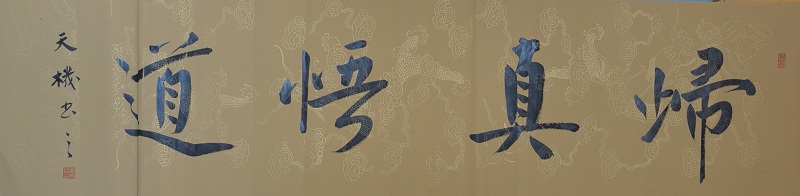 歸真悟道
天機书之